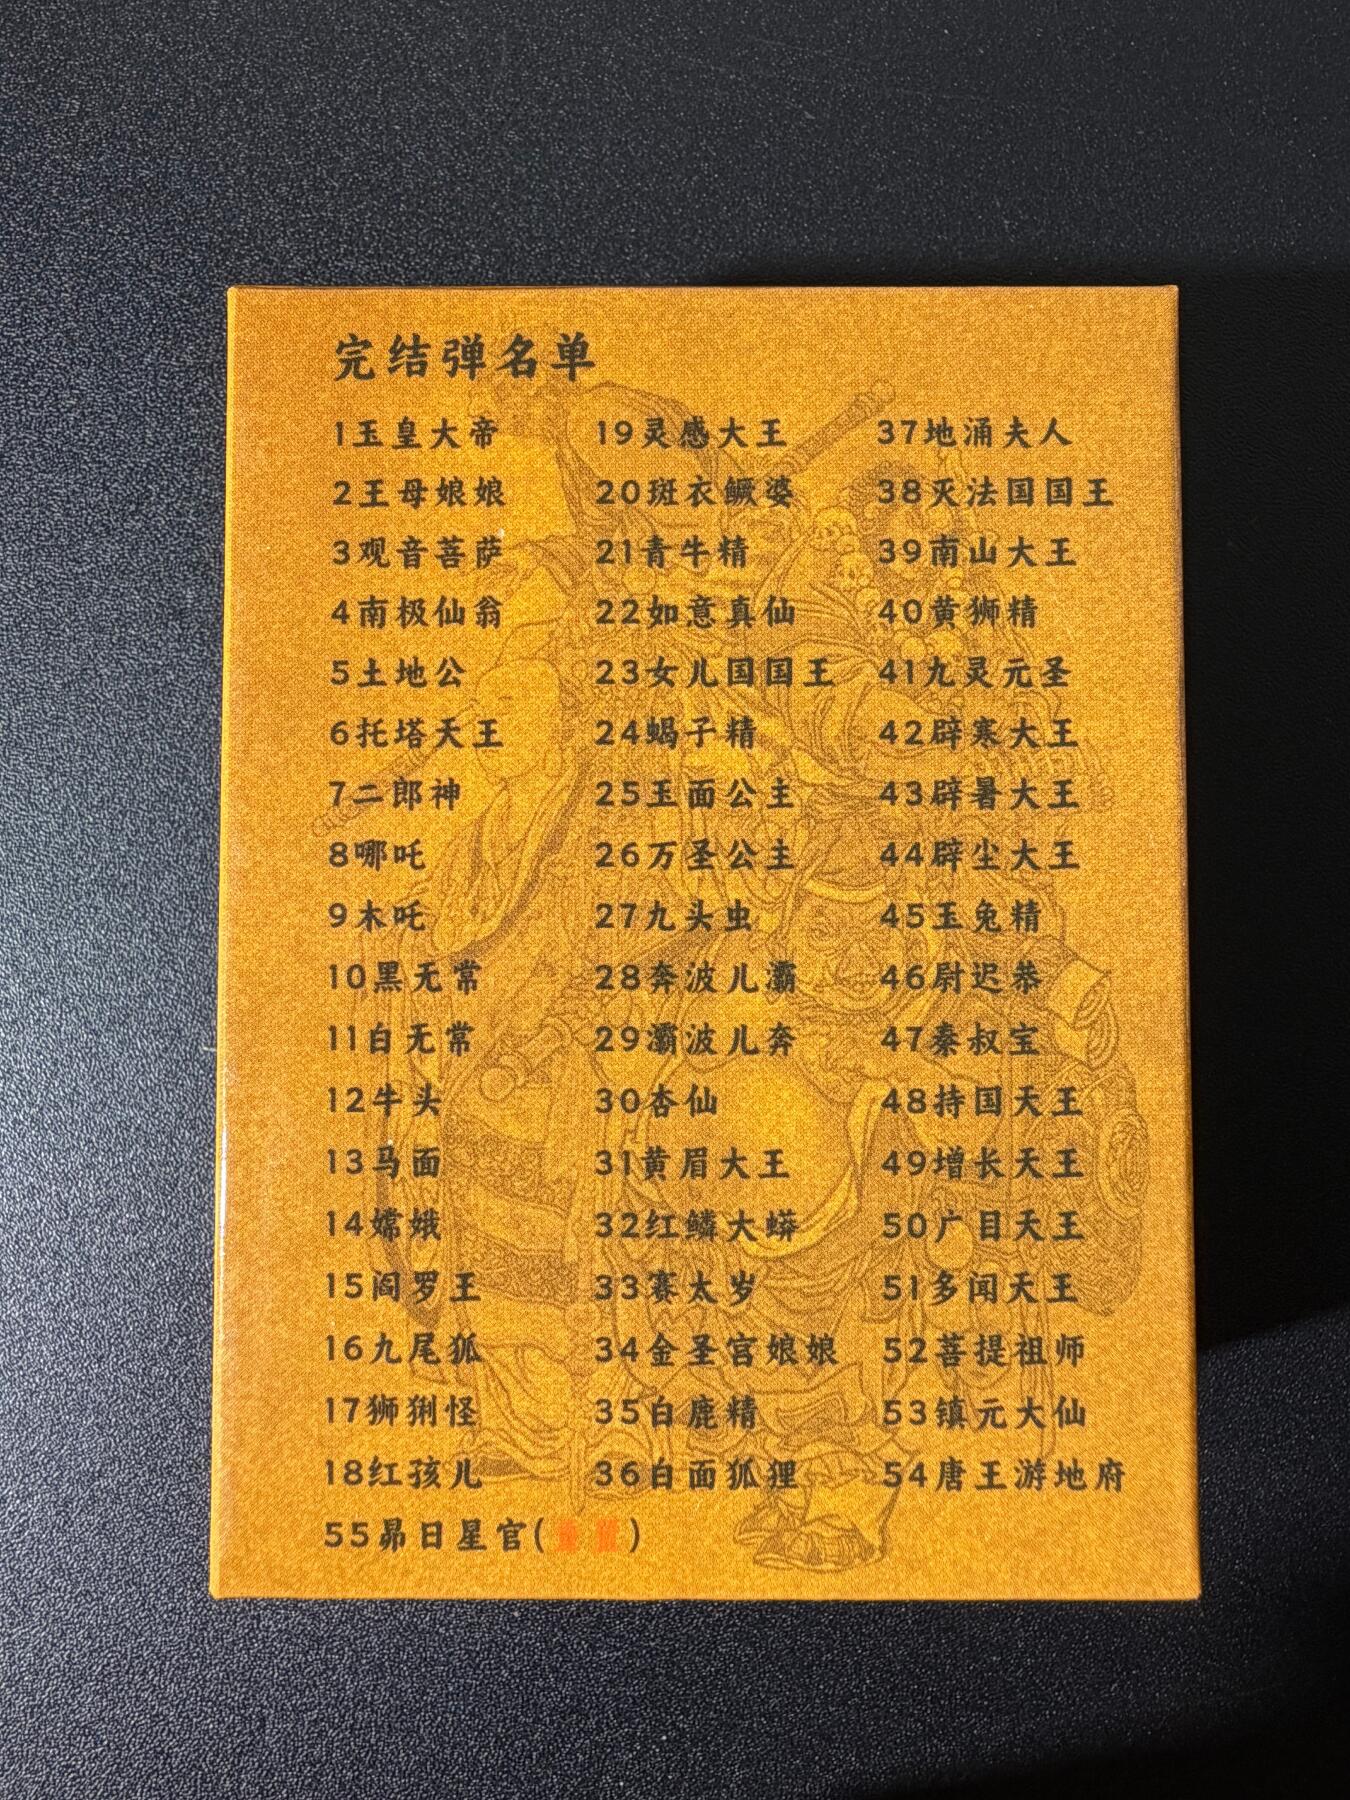 完结弹名单
1玉皇大帝
2王母娘娘
3观音菩萨
4南极仙翁
5土地公
6托塔天王
7二郎神
8哪吒
9木吒
10黑无常
11白无常
12牛头
13马面
14嫦娥
15阎罗王
16九尾狐
17狮猁怪
18红孩儿
19灵感大王
20斑衣鳜婆
21青牛精
22如意真仙
23女儿国国王
24蝎子精
25玉面公主
26万圣公主
27九头虫
28奔波儿灞
29灞波儿奔
30杏仙
31黄眉大王
32红鳞大蟒
33赛太岁
34金圣宫娘娘
35白鹿精
36白面狐狸
37地涌夫人
38灭法国国王
39南山大王
40黄狮精
41九灵元圣
42辟寒大王
43辟暑大王
44辟尘大王
45玉兔精
46尉迟恭
47秦叔宝
48持国天王
49增长天王
50广目天王
51多闻天王
52菩提祖师
53镇元大仙
54唐王游地府
55昴日星官()